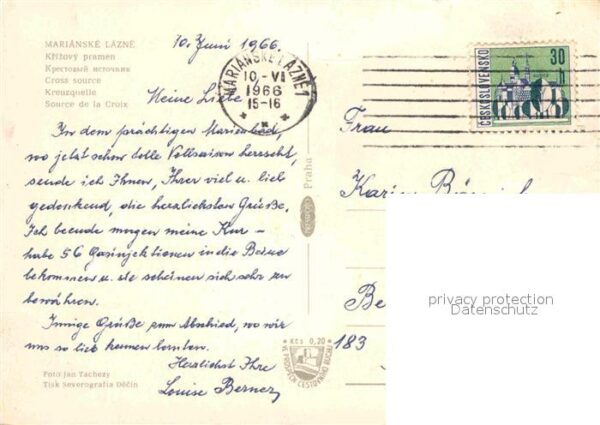 MARIÁNSKÉ LÁZNĚ
Křížový pramen
Крестовый источник
Cross source
Kreuzquelle
Source de la Croix
10. Juni 1966.
MARIÁNSKÉ LÁZNĚ 1
10.-VI
1966
15-16
ČESKOSLOVENSKO
30
h
Meine Liebe
In dem prächtigen Marienbad,
wo jetzt schon tolle Vollsaison herrscht,
sende ich Ihnen, Ihrer viel u. lieb
gedenkend, die herzlichsten Grüße.
Ich beende morgen meine Kur –
habe 56 Gasinjektionen in die Beine
bekommen u. sie scheinen sich sehr zu
bewähren.
Innige Grüße zum Abschied, wo wir
uns so lieb kennen lernten.
Herzlichst Ihre
Louise
Foto Jan Tachezy
Tisk Severografia Děčín
Praha
Kčs 0,20
VE PROSPĚCH CESTOVNÍHO RUCHU
Frau
Karin
Be
183
privacy protection
Datenschutz